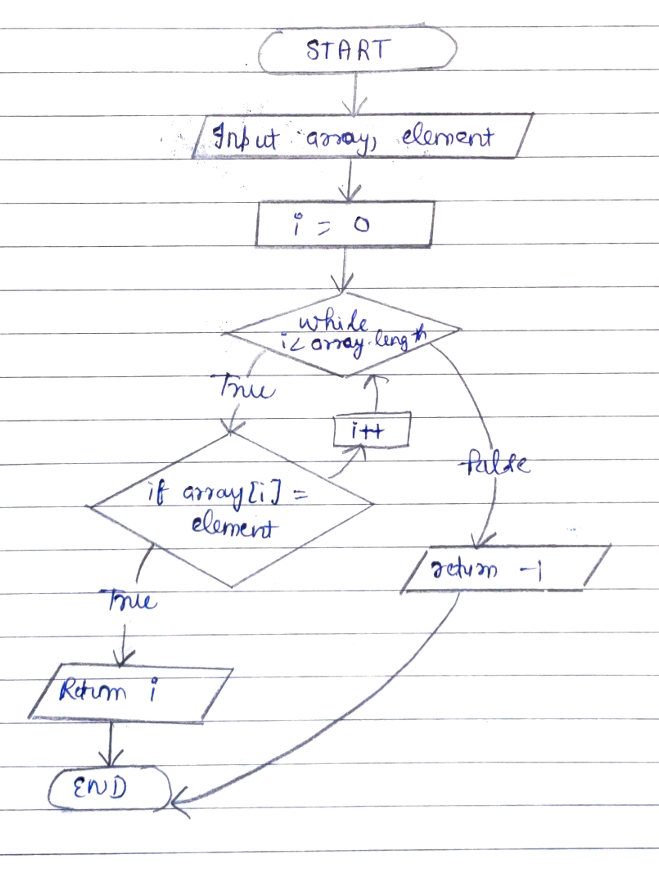 START
Input array, element
i = 0
while
i < array.length
True
i++
False
if array[i] =
element
return -1
True
Return i
END